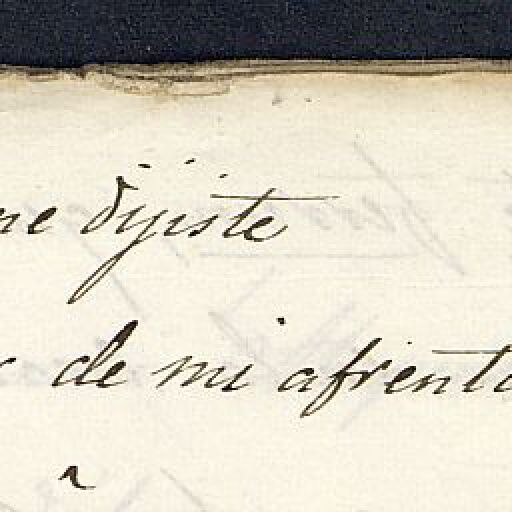 me dijiste
de mi afrenta